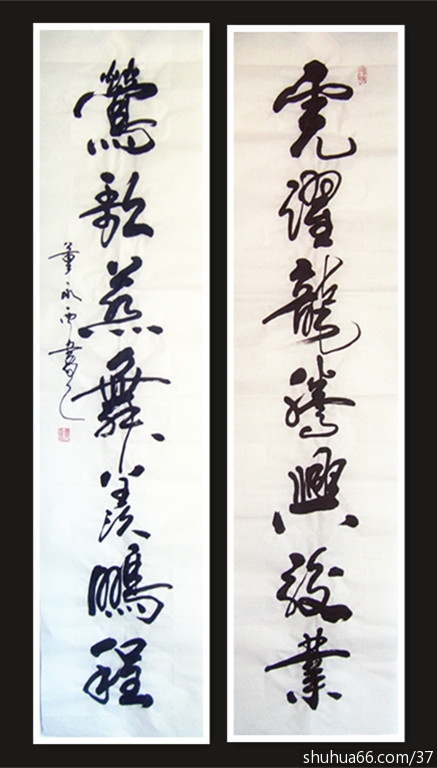 虎躍龍騰興駿業
鶯歌燕舞羨鵬程
董永書
shuhua66.com/37